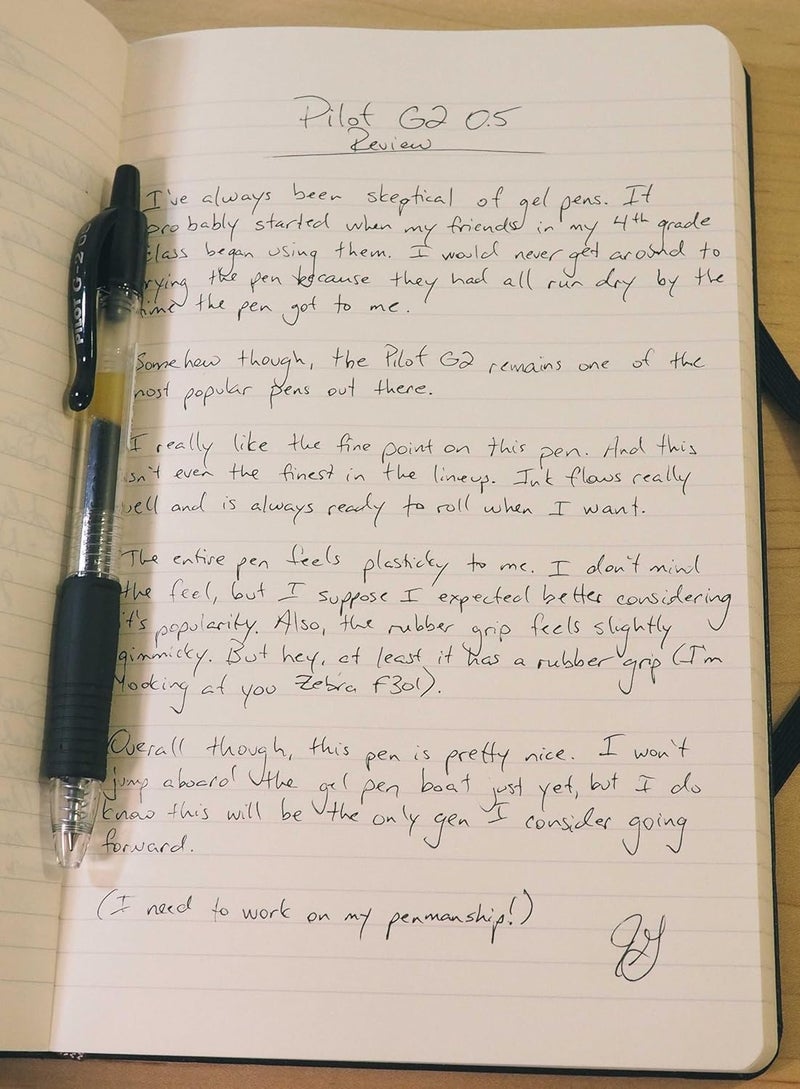 Pilot G2 0.5
Review
I've always been skeptical of gel pens. It
probably started when my friends in my 4th grade
class began using them. I would never get around to
trying the pen because they had all run dry by the
time the pen got to me.
Somehow though, the Pilot G2 remains one of the
most popular pens out there.
I really like the fine point on this pen. And this
isn't even the finest in the lineup. Ink flows really
well and is always ready to roll when I want.
The entire pen feels plasticky to me. I don't mind
the feel, but I suppose I expected better considering
it's popularity. Also, the rubber grip feels slightly
gimmicky. But hey, at least it has a rubber grip (I'm
looking at you Zebra F301).
Overall though, this pen is pretty nice. I won't
jump aboard the gel pen boat just yet, but I do
know this will be the only gen I consider going
forward.
(I need to work on my penmanship!)
JG
PILOT G-2